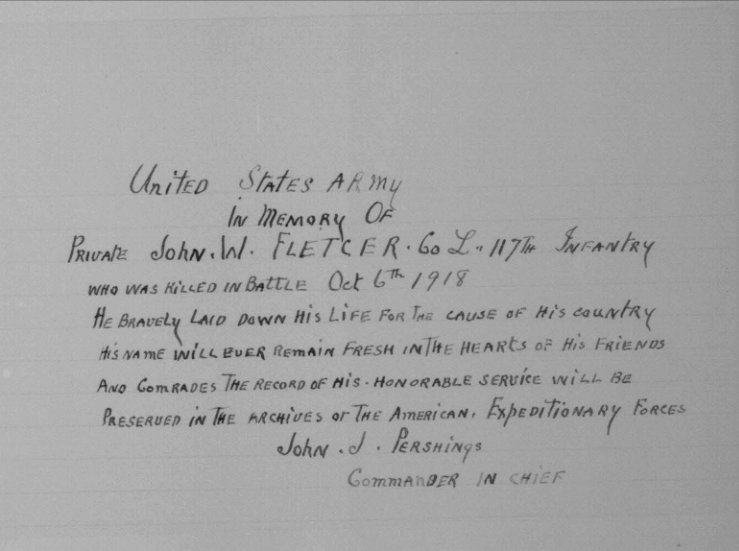 United States Army
In Memory Of
Private John. W. Fletcer. Co L. 117th Infantry
who was killed in Battle Oct 6th 1918
He Bravely Laid down His Life For The cause of His country
His name will ever Remain Fresh in the Hearts of His Friends
And Comrades The Record of His. Honorable Service will be
Preserved in the Archives of The American, Expeditionary Forces
John. J. Pershings
Commander in Chief